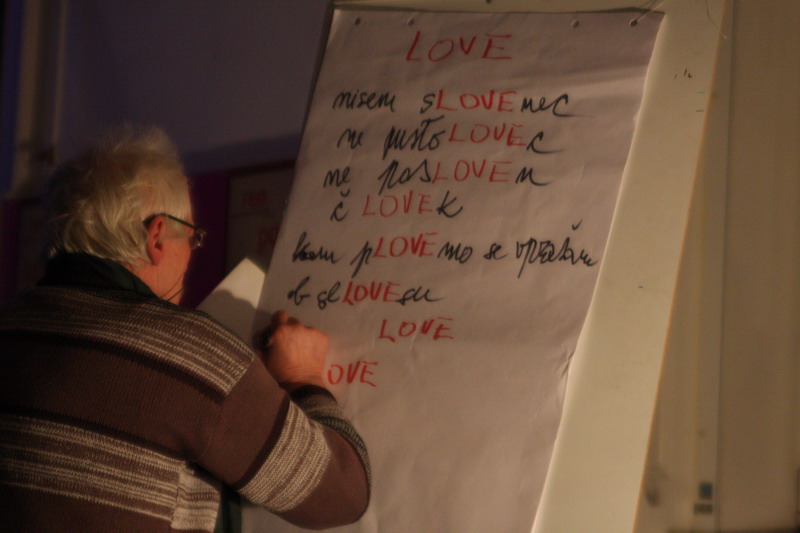 LOVE
nisem sLOVEnec
ne pustoLOVEc
ne posLOVEn
č LOVEk
kam pLOVEmo se vprašam
ob slOVEsu
LOVE
OVE